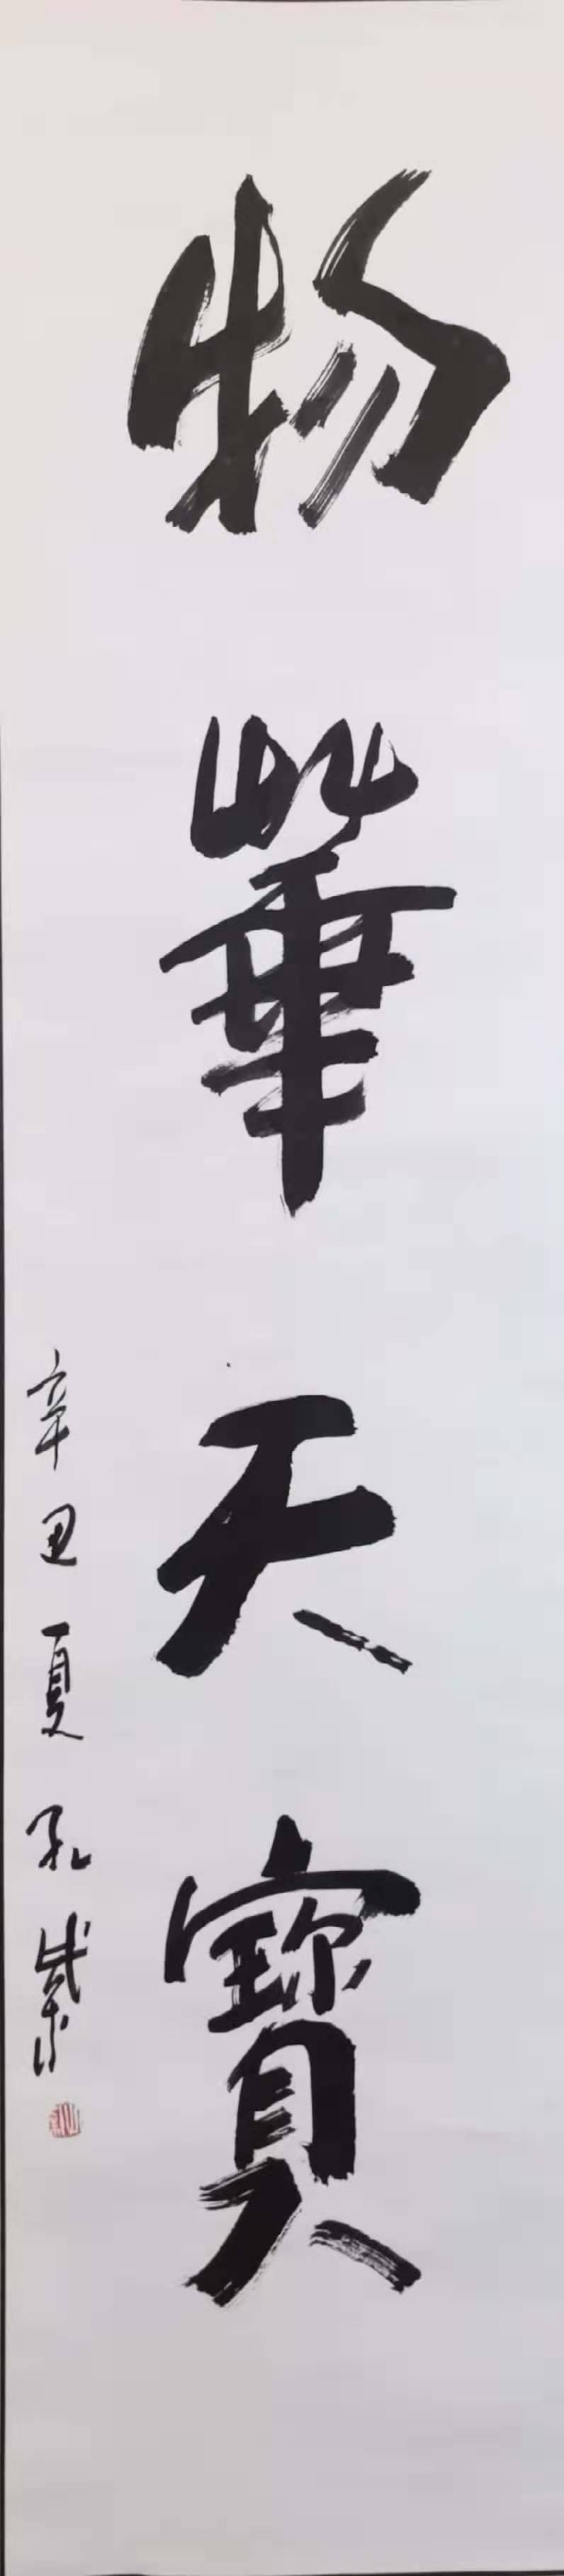 物華天寶
辛丑夏孔